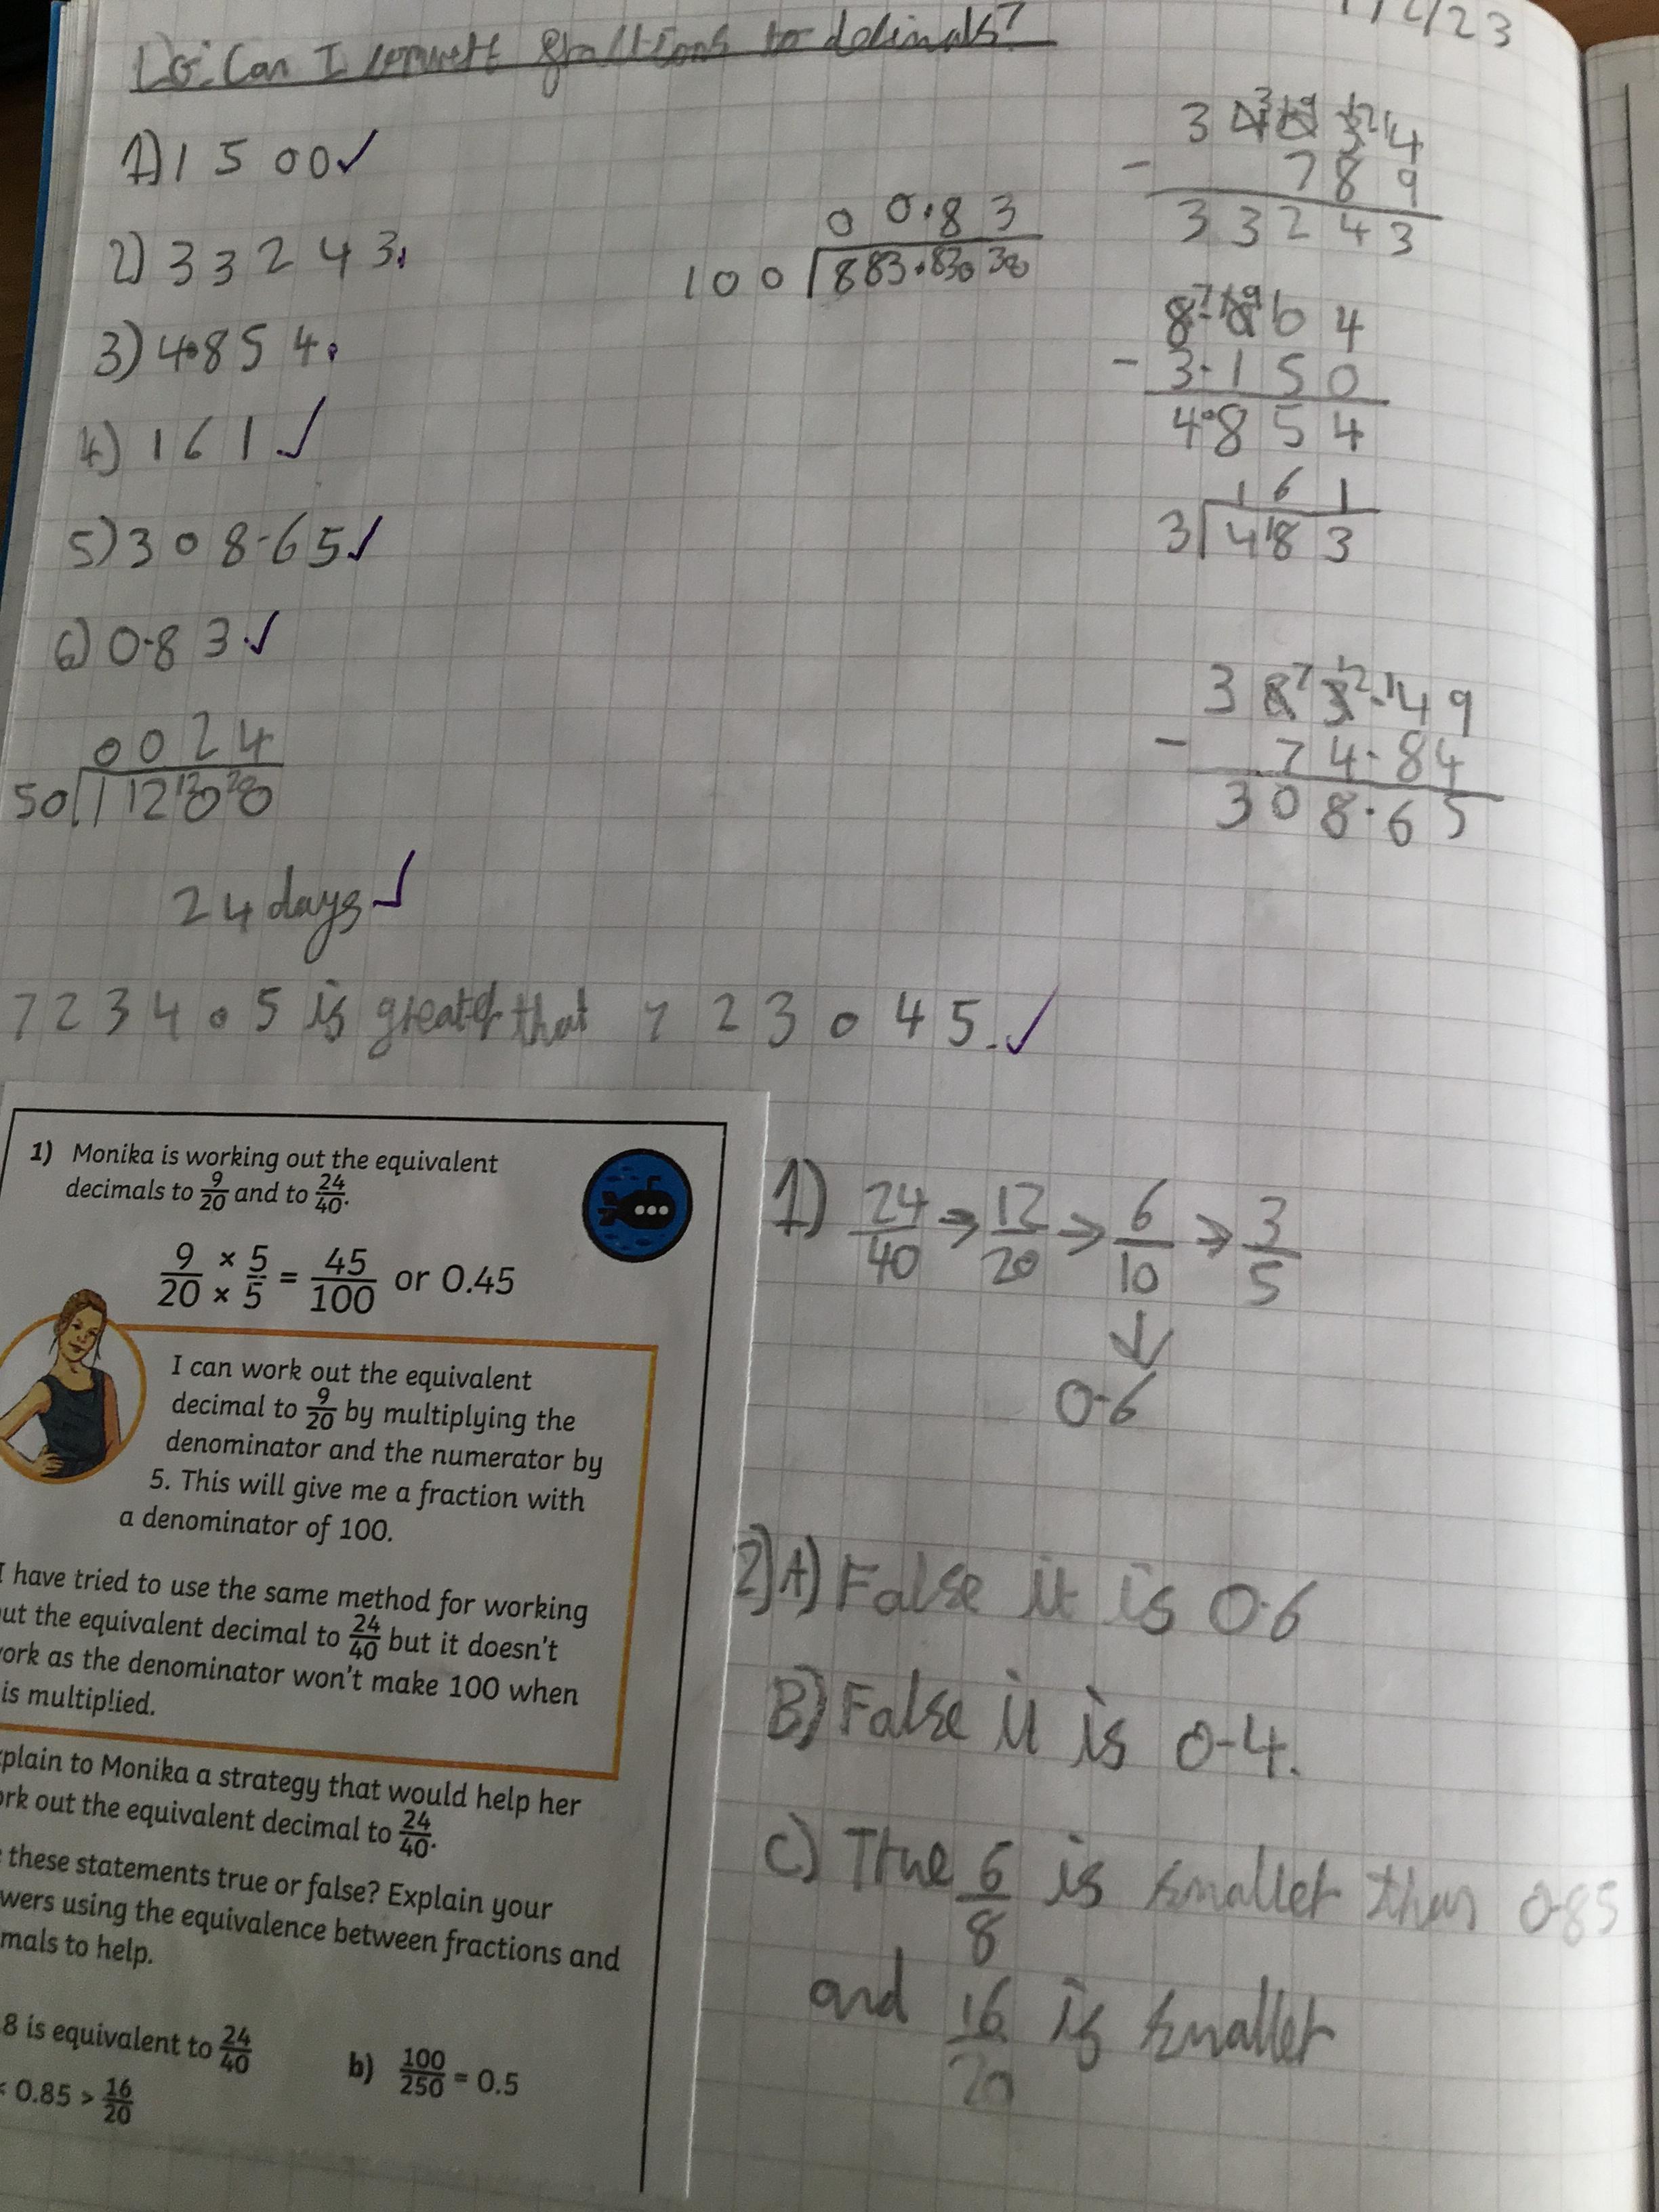 LO: Can I convert fractions to decimals?
1/2/23
1) 1 5 0 0 ✓
2) 3 3 2 4 3.
3) 4.8 5 4.
4) 1 6 1 ✓
5) 3 0 8.6 5 ✓
6) 0.8 3 ✓
0 0 2 4
50 1 12 0 0
24 days ✓
0 0.8 3
1 0 0 8 83.
3 4 0 3 4
- 7 8 9
3 3 2 4 3
8. 0 0 4
- 3.1 5 0
4.8 5 4
1 6 1
3 4 18 3
3 8 3.4 9
- 7 4.8 4
3 0 8.6 5
7 2 3 4 0 5 is greater that 7 2 3 0 4 5. ✓
1) Monika is working out the equivalent
decimals to 9/20 and to 24/40.
9/20 × 5/× 5 = 45/100 or 0.45
I can work out the equivalent
decimal to 9/20 by multiplying the
denominator and the numerator by
5. This will give me a fraction with
a denominator of 100.
I have tried to use the same method for working
ut the equivalent decimal to 24/40 but it doesn't
ork as the denominator won't make 100 when
is multiplied.
plain to Monika a strategy that would help her
ork out the equivalent decimal to 24/40.
these statements true or false? Explain your
wers using the equivalence between fractions and
mals to help.
8 is equivalent to 24/40
b) 100/250 = 0.5
< 0.85 > 16/20
1) 24/40 → 12/20 → 6/10 → 3/5
↓
0.6
2) A) False it is 0.6
B) False it is 0.4.
C) True 6/8 is smaller than 0.85
and 16/20 is smaller